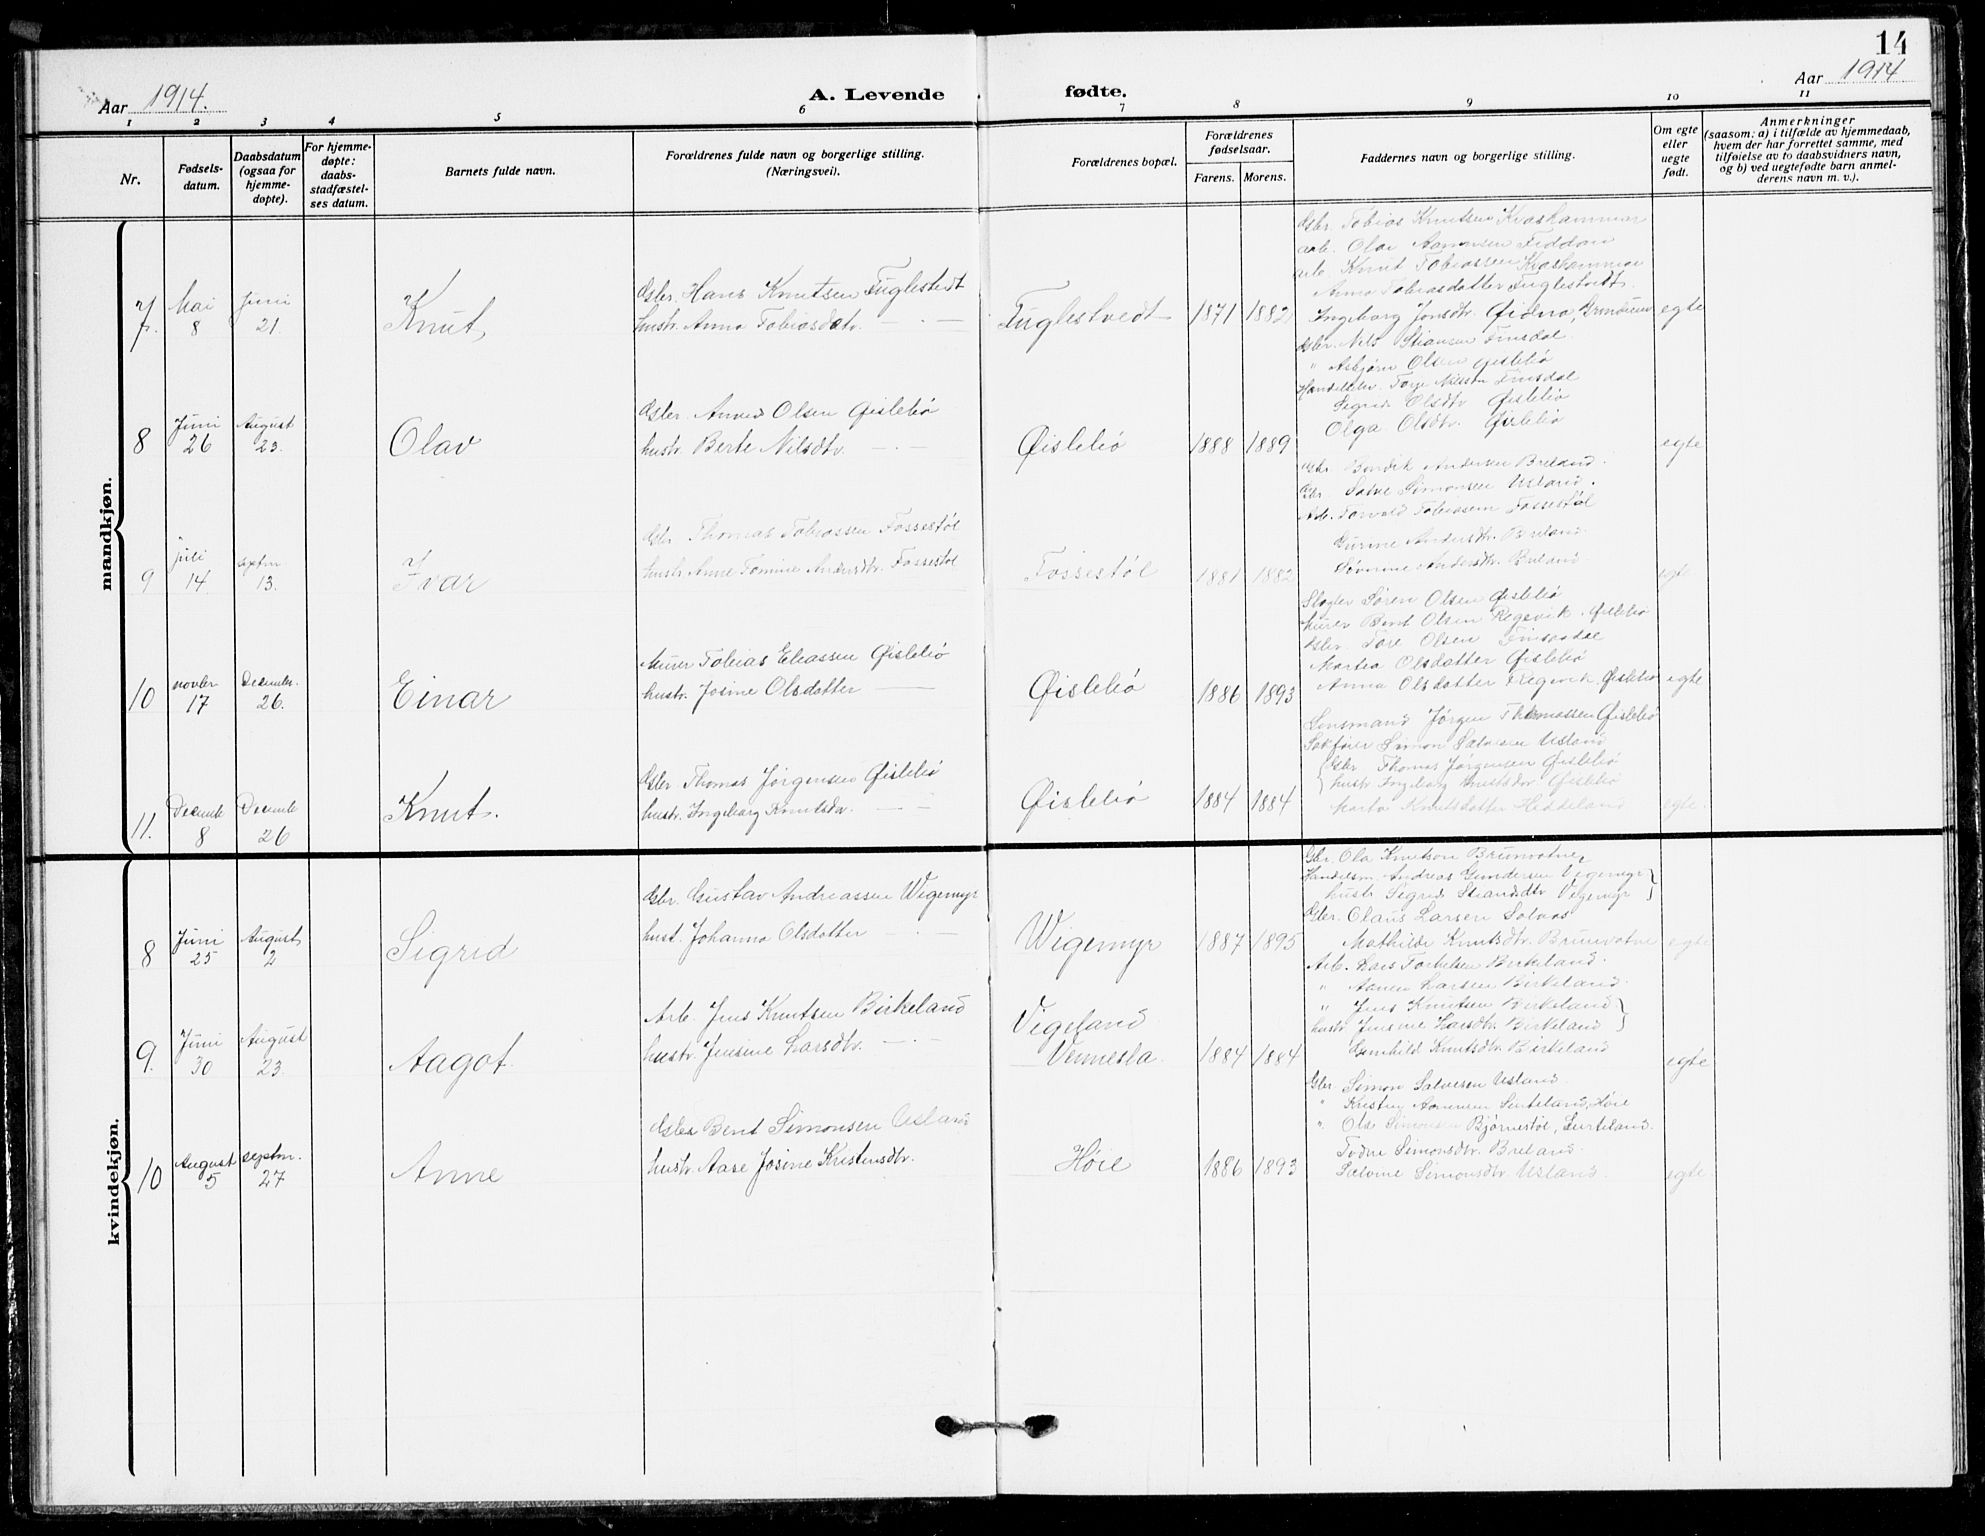 14
Aar 1914.
A. Levende fødte.
Aar 1914
1 2 3 4 5 6 7 8 9 10 11
Nr.
Fødsels-
datum.
Daabsdatum
(ogsaa for
hjemme-
døpte).
For hjemme-
døpte:
daabs-
stadfæstel-
ses datum.
Barnets fulde navn.
Forældrenes fulde navn og borgerlige stilling.
(Næringsvei).
Forældrenes bopæl.
Forældrenes
fødselsaar.
Farens. Morens.
Faddernes navn og borgerlige stilling.
Om egte
eller
uegte
født.
Anmerkninger
(saasom: a) i tilfælde av hjemmedaab,
hvem der har forrettet samme, med
tilføielse av to daabsvidners navn,
og b) ved uegtefødte barn anmel-
derens navn m. v.).
mandkjøn.
7
Mai
8
Juni
21.
Knut
Gbr. Hans Knutsen Fuglestvedt
hustr. Anna Tobiasdatr. — . —
Fuglestvedt
1871 1882
Gbr. Tobias Knutsen Kvashammar
arb. Olai Aamonsen Fiddan
arb. Knut Tobiassen Kvashammar
Anna Tobiasdatter Fuglestvedt
Ingeborg Jonsdtr. Øidna,
egte
8
Juni
26
August
23.
Olav
Gbr. Olsen Øislebø
hustr. Berte Nilsdtr. — . —
Øislebø
1888 1889
Gbr. Nils Stiansen Finsdal.
" Asbjørn Olsen Øislebø
Tore Nilsen Finsdal
Sigrid Olsdtr Øislebø
Olga Olsdtr. Øislebø
egte
9
Juli
14
septm
13.
Ivar
Gbr Thomas Tobiassen Fossestøl
hustr. Anne Tomine Andersdtr. Fossestøl
Fossestøl
1881 1882
Gbr. Bendik Andersen Breland.
Gbr. Salve Simonsen Usland.
Arb. Torvald Tobiassen Fossestøl
Gurine Andersdtr. Breland
Andersdtr. Breland
egte
10
novbr
17
December
26.
Einar
Murer Tobias Eliassen Øislebø
hustr. Josine Olsdatter —
Øislebø
1886 1893
Søren Olsen Øislebø
Murer Bent Olsen Regevik. Øislebø
Gbr. Tore Olsen Finsdal
Martea Olsdatter Øislebø
Anna Olsdatter Regevik. Øislebø
egte
11.
Decemb
8
Decemb
26
Knut.
Gbr Thomas Jørgensen Øislebø
hustr. Ingeborg Knutsdtr. — —
Øislebø
1884 1884
Lensmand Jørgen Thomassen Øislebø
Sakfører Simon Salvesen Usland
Gbr Thomas Jørgensen Øislebø
hustr Ingeborg Knutsdtr Øislebø
Marta Knutsdatter Hiddeland
egte.
kvindekjøn.
8
Juni
25
August
2
Sigrid
Gbr. Gustav Andreassen Wigemyr
hust. Johanna Olsdatter — . —
Wigemyr
1887 1895
Gbr. Ola Knutson Brunvatne
Handelsm. Andreas Gundersen Vegemyr
hustr Sigrid Stiansdtr Vegemyr
Gbr. Claus Larsen Solaas
Mathilde Knutsdtr. Brunvatne
egte
9.
Juni
30
August
23.
Aagot.
Arb. Jens Knutsen Birkeland
hustr. Jensine Larsdtr. — . —
Vigeland
Vennesla.
1884 1884
Arb. Lars Torkelsen Birkeland.
" Larsen Birkeland.
" Jens Knutsen Birkeland
hustr Jensine Larsdtr. Birkeland
Gunhild Knutsdtr. Birkeland
egte
10
August
5
septm.
27
Anne
Gbr Bent Simonsen Usland
hustr. Aase Josine Kristensdtr.
Høie
1886 1893
Gbr Simon Salvesen Usland.
" Kristen Aamunsen Høie
" Ola Simonsen Bjørnestøl,
Todne Simonsdtr. Breland.
Salome Simonsdtr. Usland.
egte.